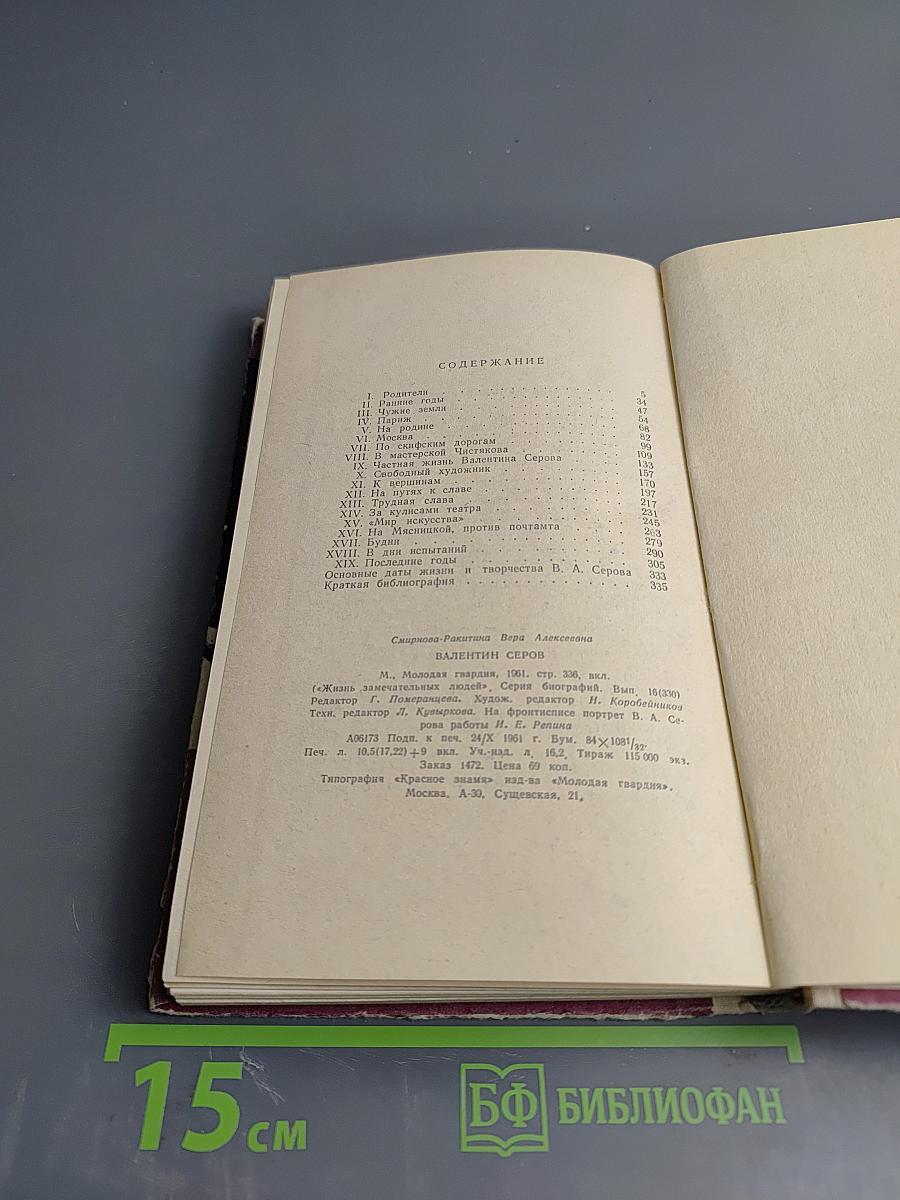 СОДЕРЖАНИЕ
I. Родители 5
II. Ранние годы 34
III. Чужие земли 47
IV. Париж 54
V. На родине 68
VI. Москва 82
VII. По скифским дорогам 99
VIII. В мастерской Чистякова 109
IX. Частная жизнь Валентина Серова 133
X. Свободный художник 157
XI. К вершинам 170
XII. На путях к славе 197
XIII. Трудная слава 217
XIV. За кулисами театра 231
XV. «Мир искусства» 245
XVI. На Мясницкой, против почтамта 263
XVII. Будни 279
XVIII. В дни испытаний 290
XIX. Последние годы 305
Основные даты жизни и творчества В. А. Серова 333
Краткая библиография 335
Смирнова-Ракитина Вера Алексеевна
ВАЛЕНТИН СЕРОВ
М., Молодая гвардия, 1961. стр. 336, вкл.
(«Жизнь замечательных людей», Серия биографий. Вып. 16(330)
Редактор Г. Померанцева. Худож. редактор Н. Коробейников
Техн. редактор Л. Кувыркова. На фронтисписе портрет В. А. Се-
рова работы И. Е. Репина
А06173 Подп. к печ. 24/X 1961 г. Бум. 84×108 1/32.
Печ. л. 10,5(17,22)+9 вкл. Уч.-изд. л. 16,2. Тираж 115 000 экз.
Заказ 1472. Цена 69 коп.
Типография «Красное знамя» изд-ва «Молодая гвардия».
Москва, А-30, Сущевская, 21.
15 см
БФ БИБЛИОФАН